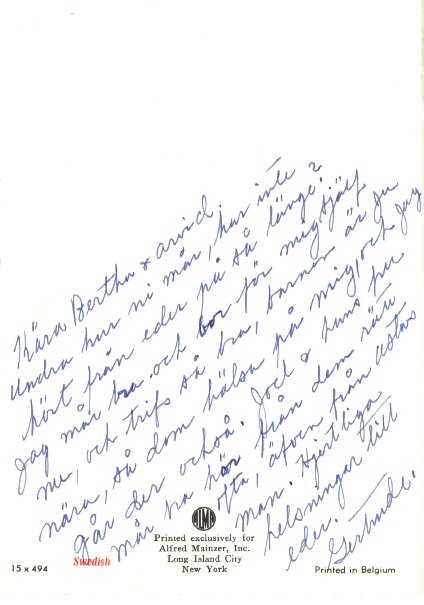 Kära Bertha & Arvid.
Undra hur ni mår, har inte
hört från eder på så länge?
Jag mår bra och bor för mig själf
nu, och trifs så bra, barnen är ju
nära, så dom hälsa på mig, och jag
går der också. Joel & hans fru
mår bra hör från dem rätt
ofta, äfven från Astas
man. Hjertliga
helsningar till
eder.
Gertrude.
AMA
Printed exclusively for
Alfred Mainzer, Inc.
Long Island City
New York
15 x 494
Swedish
Printed in Belgium